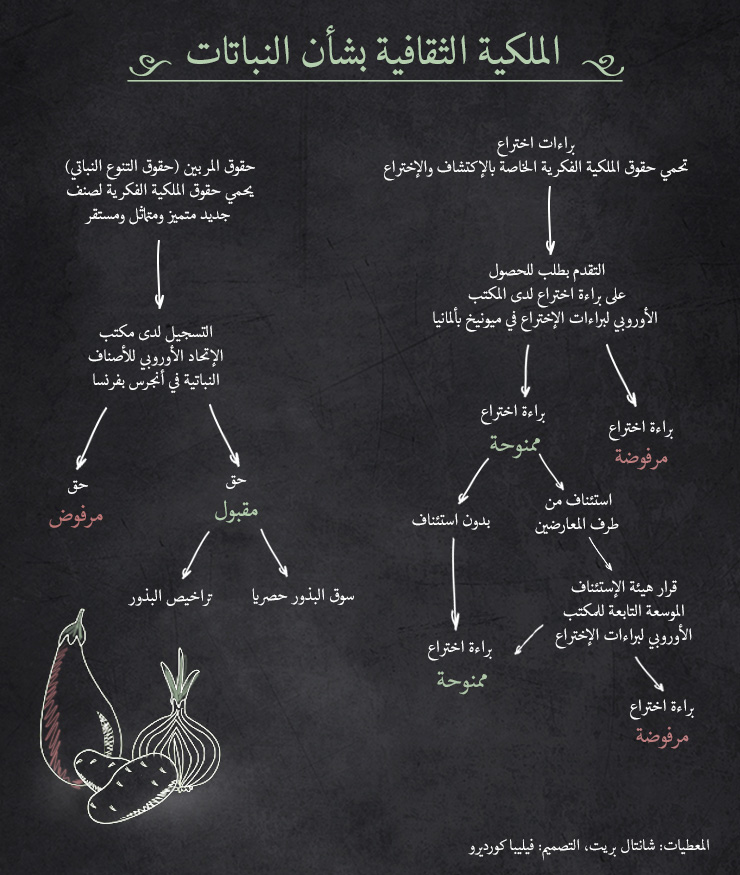 الملكية الثقافية بشأن النباتات
براءات اختراع
تحمي حقوق الملكية الفكرية الخاصة بالإكتشاف والإختراع
التقدم بطلب للحصول
على براءة اختراع لدى المكتب
الأوروبي لبراءات الإختراع في ميونيخ بألمانيا
براءة اختراع
مرفوضة
براءة اختراع
ممنوحة
استئناف من
طرف المعارضين
بدون استئناف
قرار هيئة الإستئناف
الموسعة التابعة للمكتب
الأوروبي لبراءات الإختراع
براءة اختراع
ممنوحة
براءة اختراع
مرفوضة
حقوق المربين (حقوق التنوع النباتي)
يحمي حقوق الملكية الفكرية لصنف
جديد متميز ومتماثل ومستقر
التسجيل لدى مكتب
الإتحاد الأوروبي للأصناف
النباتية في أنجرس بفرنسا
حق
مقبول
حق
مرفوض
سوق البذور حصريا
تراخيص البذور
المعطيات: شانتال بريت، التصميم: فيليبا كورديرو